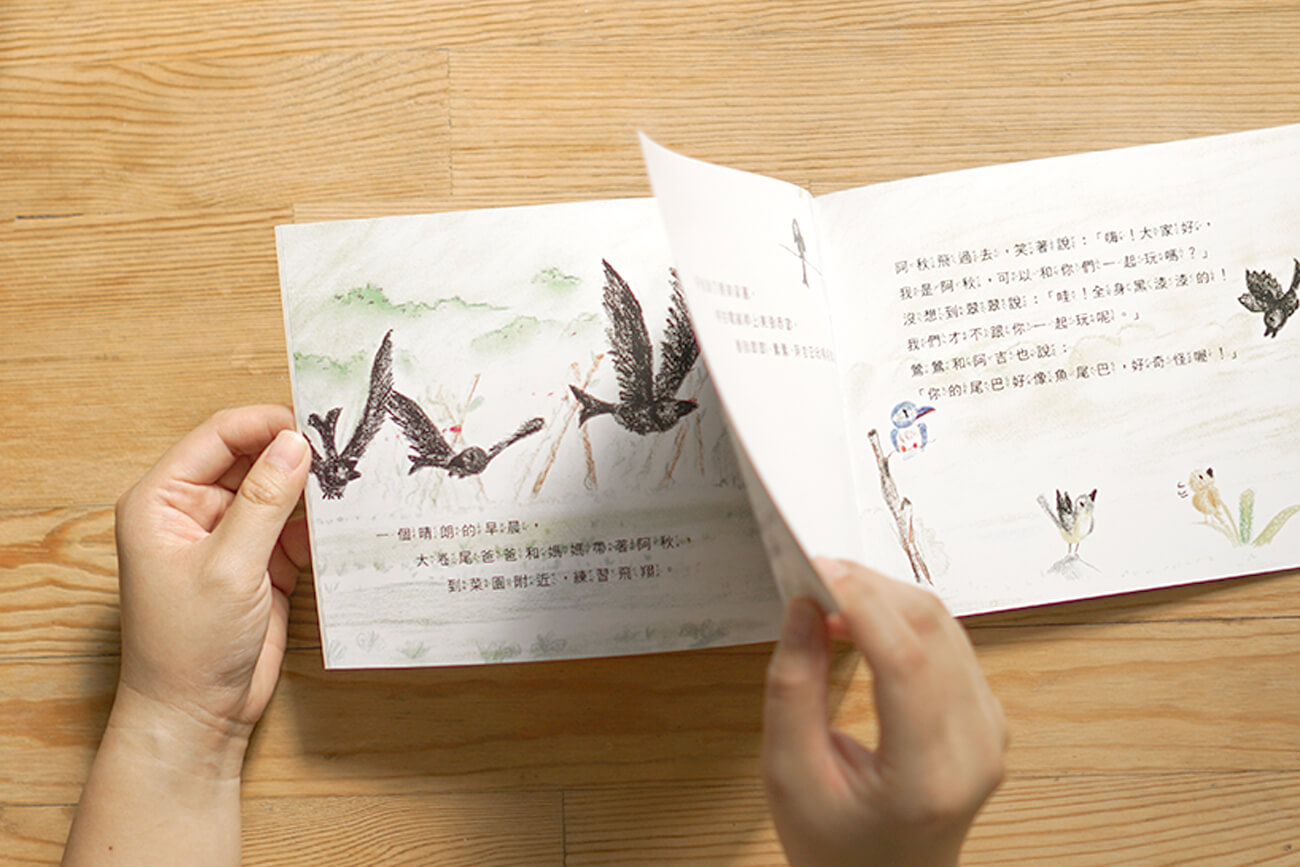 一個晴朗的早晨，
大卷尾爸爸和媽媽帶著阿秋，
到菜園附近，練習飛翔。
阿秋飛過去，笑著說：「嗨！大家好，
我是阿秋，可以和你們一起玩嗎？」
沒想到翠翠說：「哇！全身黑漆漆的！
我們才不跟你一起玩呢。」
鶯鶯和阿吉也說：
「你的尾巴好像魚尾巴，好奇怪喔！」